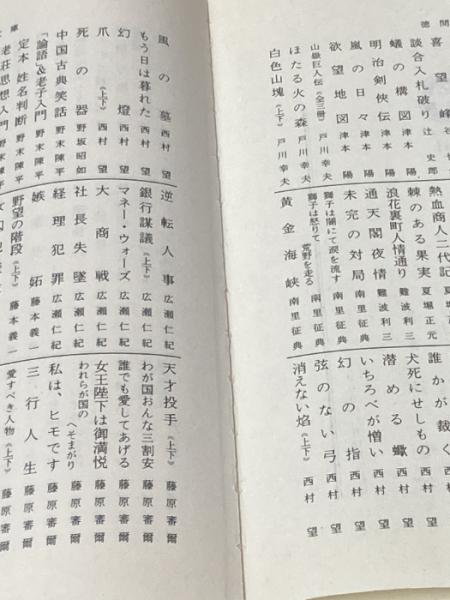 徳間
喜望峰 谷
談合入札破り 辻 史郎
蟻の構図 津本 陽
明治剣侠伝 津本 陽
嵐の日々 津本 陽
欲望地図 津本 陽
山嶽巨人伝《全三冊》 戸川幸夫
ほたる火の森 戸川幸夫
白色山塊《上下》 戸川幸夫
熱血商人二代記 夏堀正
棘のある果実 夏堀正元
浪花裏町人情通り 難波利三
通天閣夜情 難波利三
未完の対局 南里征典
獅子は闇にて涙を流す 南里征典
獅子は怒りて荒野を走る 南里征典
黄金海峡 南里征典
誰かが裁く 西
犬死にせしもの 西村
潜める蠍 西村 望
いちろべが憎い 西村 望
幻の指 西村 望
弦のない弓 西村 望
消えない焰《上下》 西村 望
風の墓 西村 望
もう日は暮れた 西村 望
幻燈 西村 望
爪《上下》 西村 望
死の器 野坂昭如
中国古典笑話 野末陳平
「論語」&老子入門 野末陳平
定本 姓名判断 野末陳平
老荘思想入門 野末陳平
庫
逆転人事 広瀬仁紀
銀行謀議《上下》 広瀬仁紀
マネー・ウォーズ 広瀬仁紀
大商戦 広瀬仁紀
社長失墜 広瀬仁紀
経理犯罪 広瀬仁紀
嫉妬 藤本義一
野望の階段《上下》 藤本義一
天才投手《上下》 藤原審爾
わが国おんな三割安 藤原審爾
誰でも愛してあげる 藤原審爾
女王陛下は御満悦 藤原審爾
われらが国のへそまがり 藤原審爾
私は、ヒモです 藤原審爾
三行人生 藤原審爾
愛すべき人物《上下》 藤原審爾